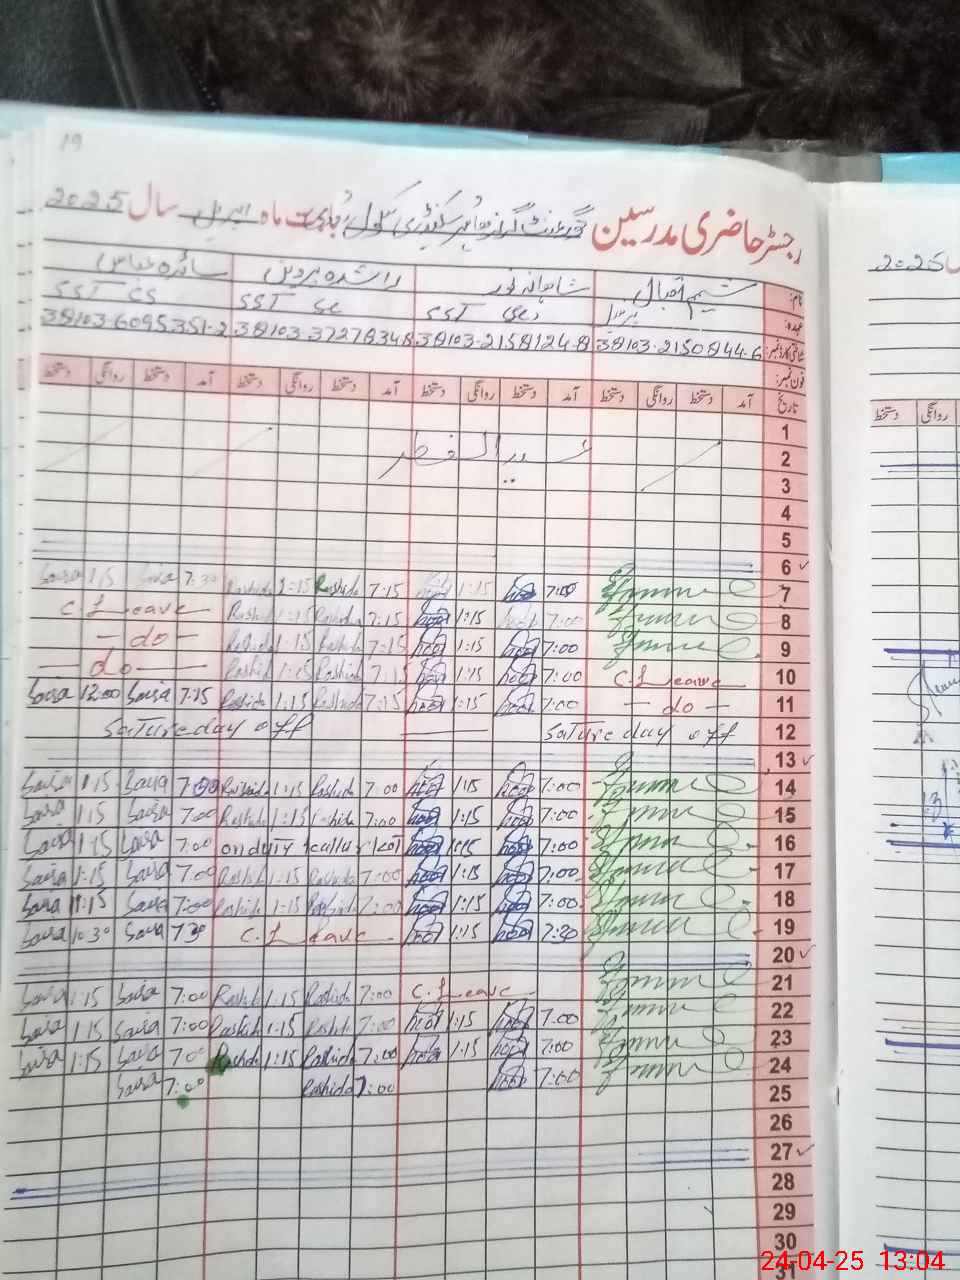 19
رجسٹر حاضری مدرسین گورنمنٹ گرلز ہائیر سیکنڈری سکول بابت ماہ اپریل سال 2025
نام: شمیم اقبال شاہانہ نور راشدہ پروین سائرہ عباس
عہدہ: SST SSTSC SST CS
شناختی کارڈ نمبر: 38103-2150844-6 38103-2158124-8 38103-3727834-8 38103-6095351-2
فون نمبر:
تاریخ آمد دستخط روانگی دستخط آمد دستخط روانگی دستخط آمد دستخط روانگی دستخط آمد دستخط روانگی دستخط
1
عید الفطر 2
3
4
5
6
Saira 1:15 Saira 7:30 Rashida 1:15 Rashida 7:15 1:15 7:00 7
C.Leave Rashida 1:15 Rashida 7:15 1:15 7:00 8
-do- Rashida 1:15 Rashida 7:15 1:15 7:00 9
-do- Rashida 1:15 Rashida 7:15 1:15 7:00 C.Leave 10
Saira 12:00 Saira 7:15 Rashida 1:15 Rashida 7:15 1:15 7:00 -do- 11
Satureday off Satureday off 12
13
Saira 1:15 Saira 7:00 Rashida 1:15 Rashida 7:00 1:15 7:00 14
Saira 1:15 Saira 7:00 Rashida 1:15 Rashida 7:00 1:15 7:00 15
Saira 1:15 Saira 7:00 on duty 1:15 7:00 16
Saira 1:15 Saira 7:00 Rashida 1:15 Rashida 7:00 1:15 7:00 17
Saira 1:15 Saira 7:00 Rashida 1:15 Rashida 7:00 1:15 7:00 18
Saira 10:30 Saira 7:30 C.Leave 1:15 7:20 19
20
Saira 1:15 Saira 7:00 Rashida 1:15 Rashida 7:00 C.Leave 21
Saira 1:15 Saira 7:00 Rashida 1:15 Rashida 7:00 1:15 7:00 22
Saira 1:15 Saira 7:00 Rashida 1:15 Rashida 7:00 1:15 7:00 23
Saira 7:00 Rashida 7:00 7:00 24
25
26
27
28
29
30
31
2025
دستخط روانگی
24-04-25 13:04